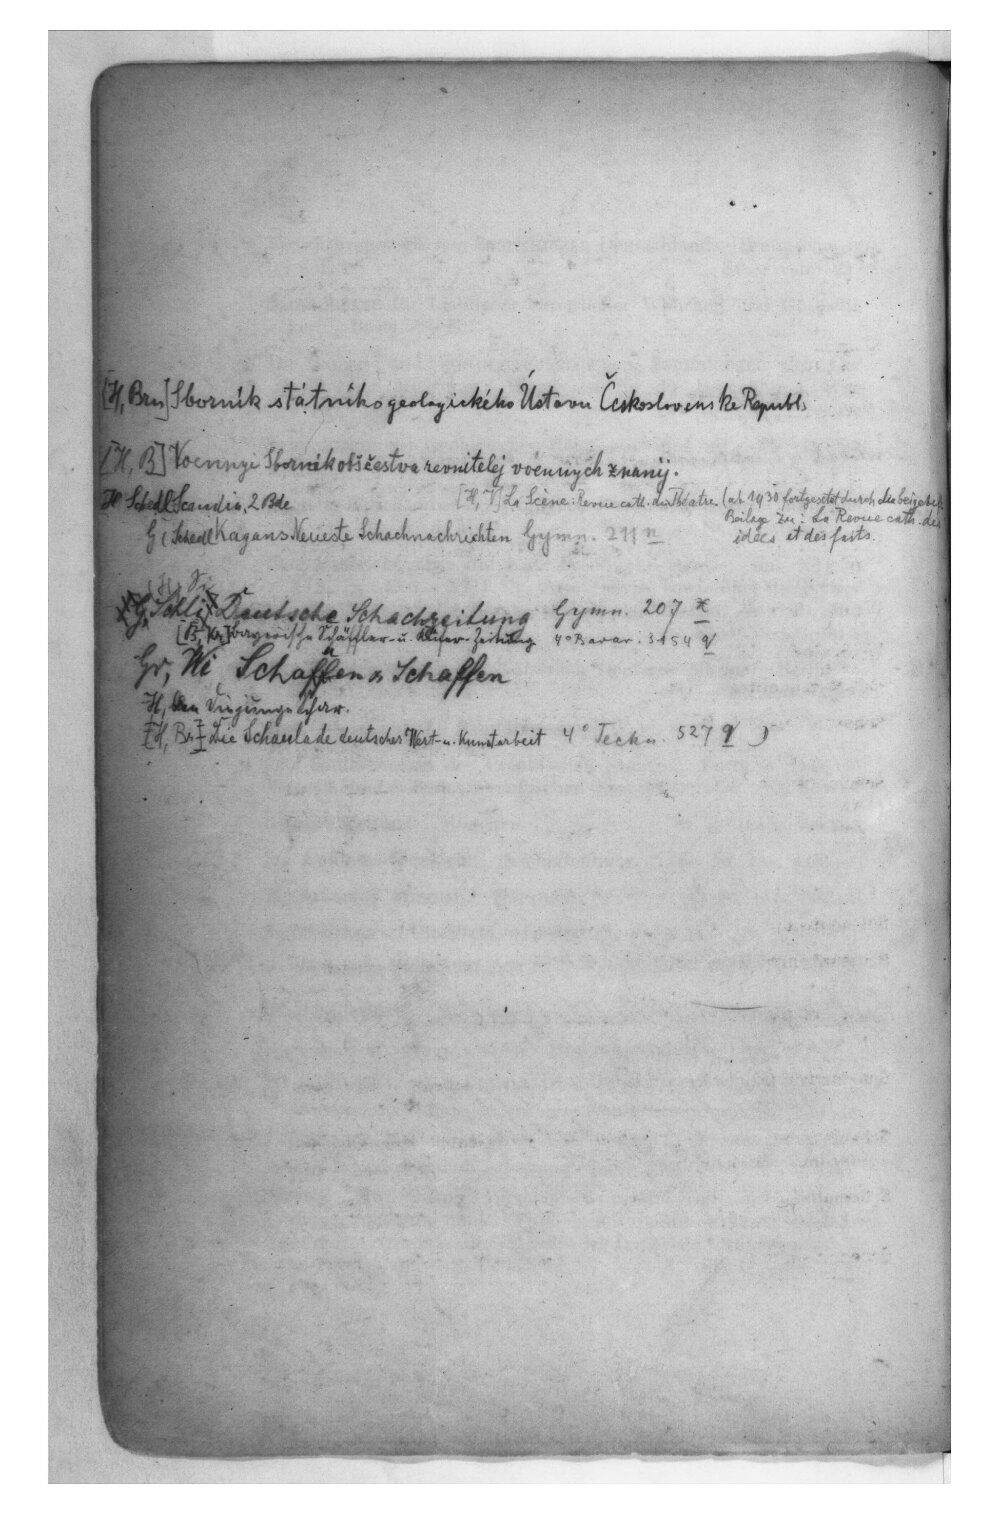 [H, Brn] Sborník státního geologického Ústavu Československe Republ.
[H, B] Voennyi Sborník obščestva revnitelej voennych znanij.
H Schedl Scandia, 2 Bde
[H, T] La Scène: Revue cath. du Théatre. (ab 1930 fortgesetzt durch die
Beilage zu: La Revue cath. des
idées et des faits.
G (Schedl Kagans Neueste Schachnachrichten Gymn. 211 n
G, Schli Deutsche Schachzeitung Gymn. 207 x
[B, Kr] bayerische Schäffler- u. Küfer-Zeitung 4° Bavar. 3154 q
Gr, Wi Schaffen u Schaffen
H,
[H, Br] Die Schaulade deutscher Wert- u. Kunstarbeit 4° Techn. 527 q )